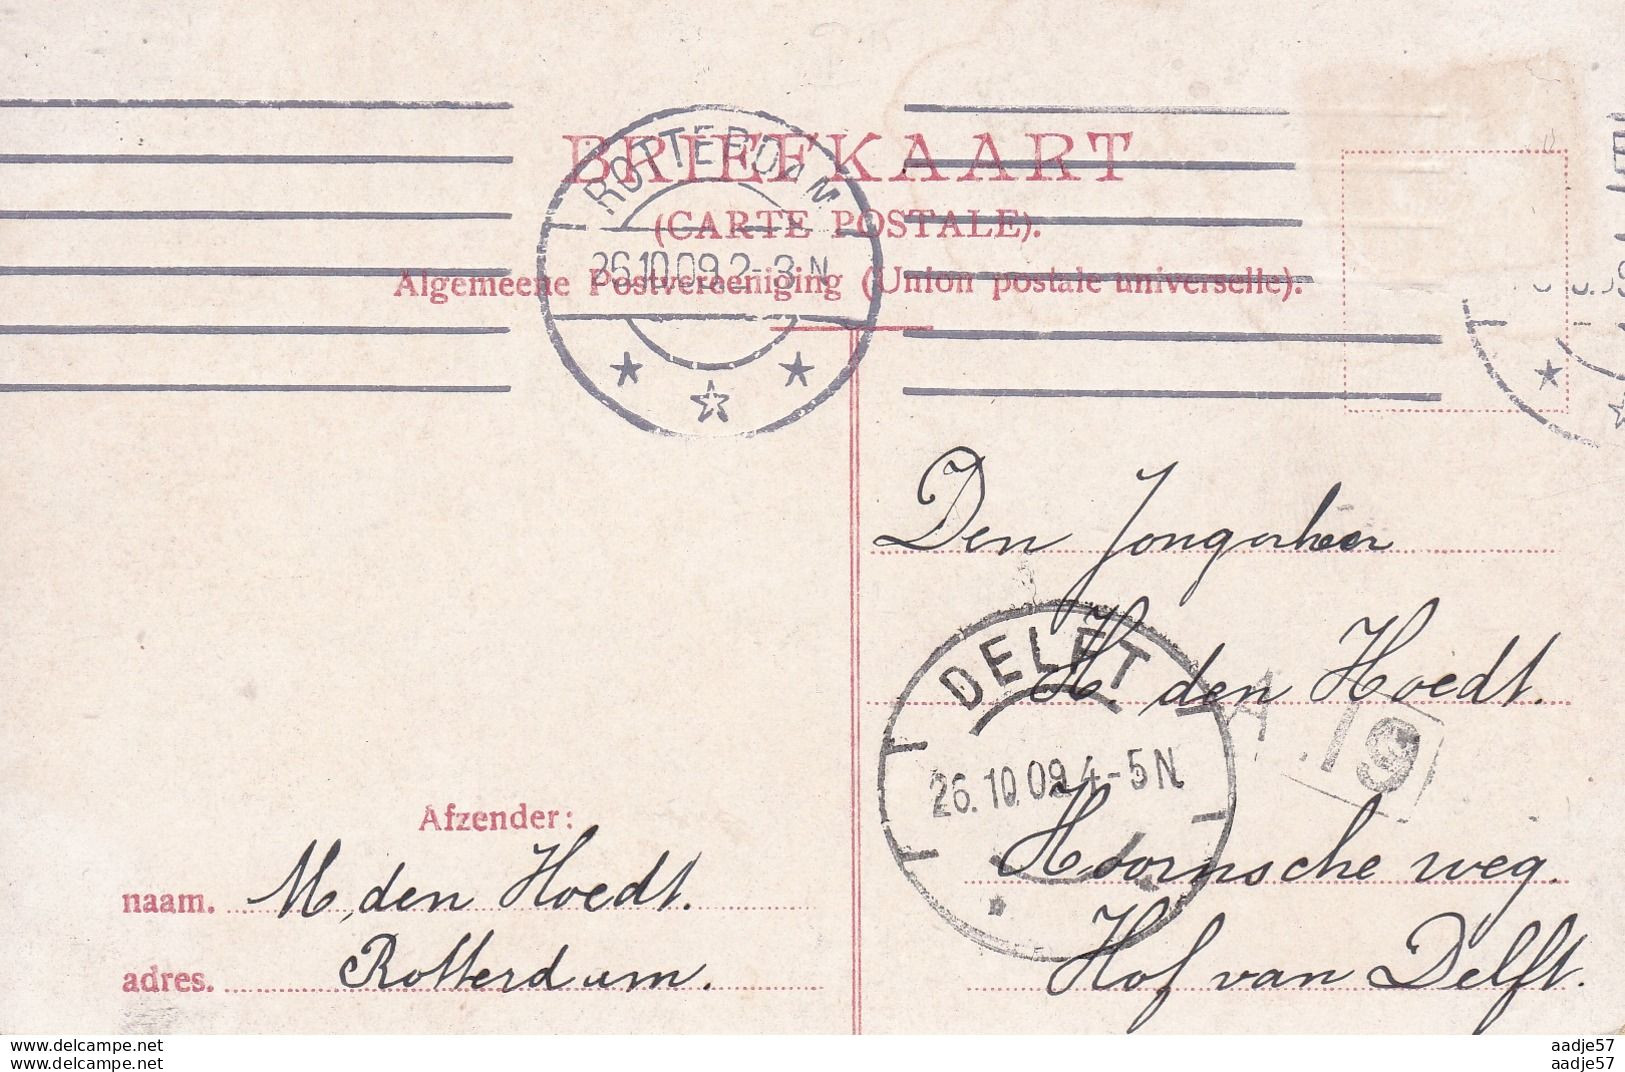 BRIEFKAART
(CARTE POSTALE).
Algemeene Postvereeniging (Union postale universelle).
ROTTERDAM
26.10.09.2-3.N
Den Jongerheer
H. den Hoedt.
Hoornsche weg.
Hof van Delft.
DELFT
26.10.09.4-5N
A.19
Afzender:
naam. M. den Hoedt.
adres. Rotterdam.
www.delcampe.net
www.delcampe.net
aadje57
aadje57